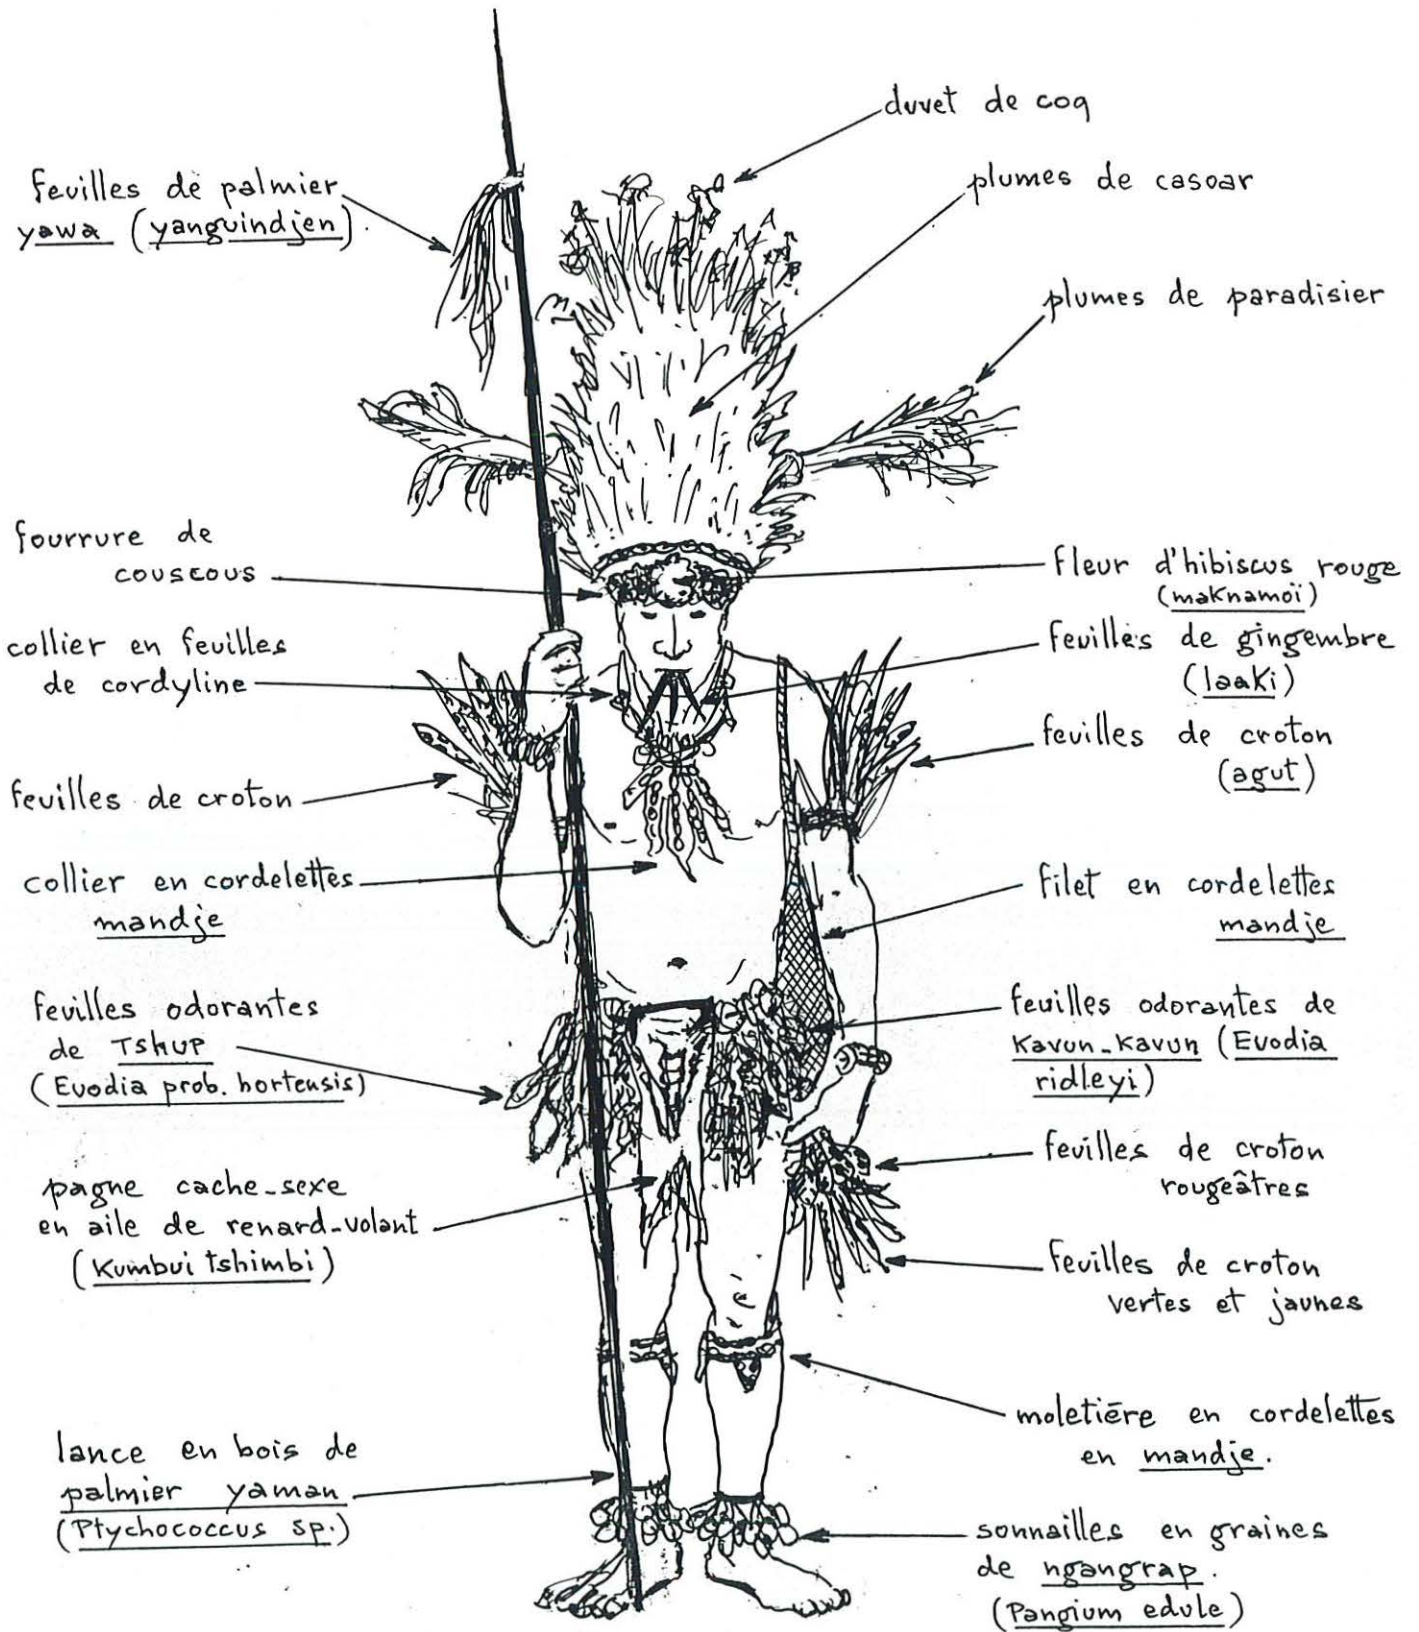 duvet de coq
plumes de casoar
plumes de paradisier
feuilles de palmier
yawa (yanguindjen).
fourrure de
couscous
collier en feuilles
de cordyline
feuilles de croton
collier en cordelettes
mandje
feuilles odorantes
de Tshup
(Evodia prob. hortensis)
pagne cache-sexe
en aile de renard-volant
(Kumbui tshimbi)
lance en bois de
palmier yaman
(Ptychococcus sp.)
fleur d'hibiscus rouge
(maknamoï)
feuilles de gingembre
(laaki)
feuilles de croton
(agut)
filet en cordelettes
mandje
feuilles odorantes de
Kavun-Kavun (Evodia
ridleyi)
feuilles de croton
rougeâtres
feuilles de croton
vertes et jaunes
moletiēre en cordelettes
en mandje.
sonnailles en graines
de ngangrap.
(Pangium edule)